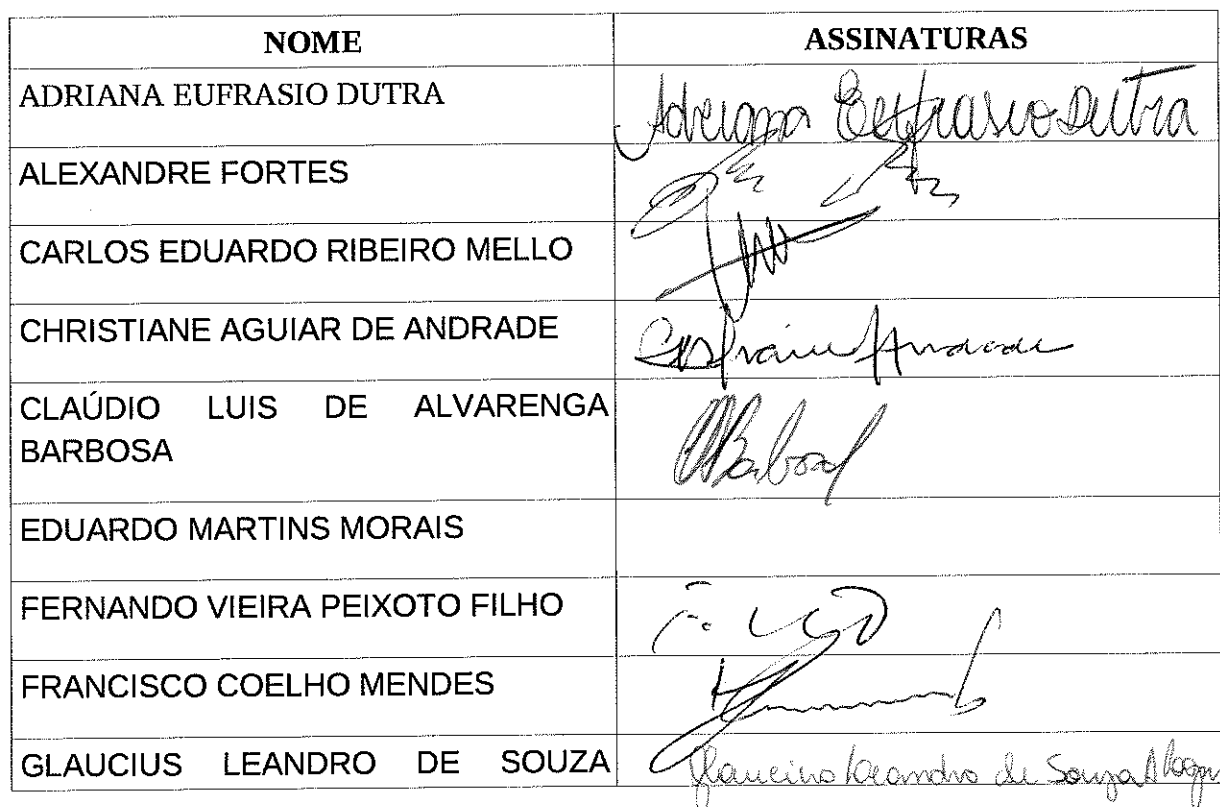 NOME ASSINATURAS
ADRIANA EUFRASIO DUTRA Adriana Eufrasio Dutra
ALEXANDRE FORTES
CARLOS EDUARDO RIBEIRO MELLO
CHRISTIANE AGUIAR DE ANDRADE Andrade
CLAÚDIO LUIS DE ALVARENGA
BARBOSA
EDUARDO MARTINS MORAIS
FERNANDO VIEIRA PEIXOTO FILHO
FRANCISCO COELHO MENDES
GLAUCIUS LEANDRO DE SOUZA Leandro de Souza